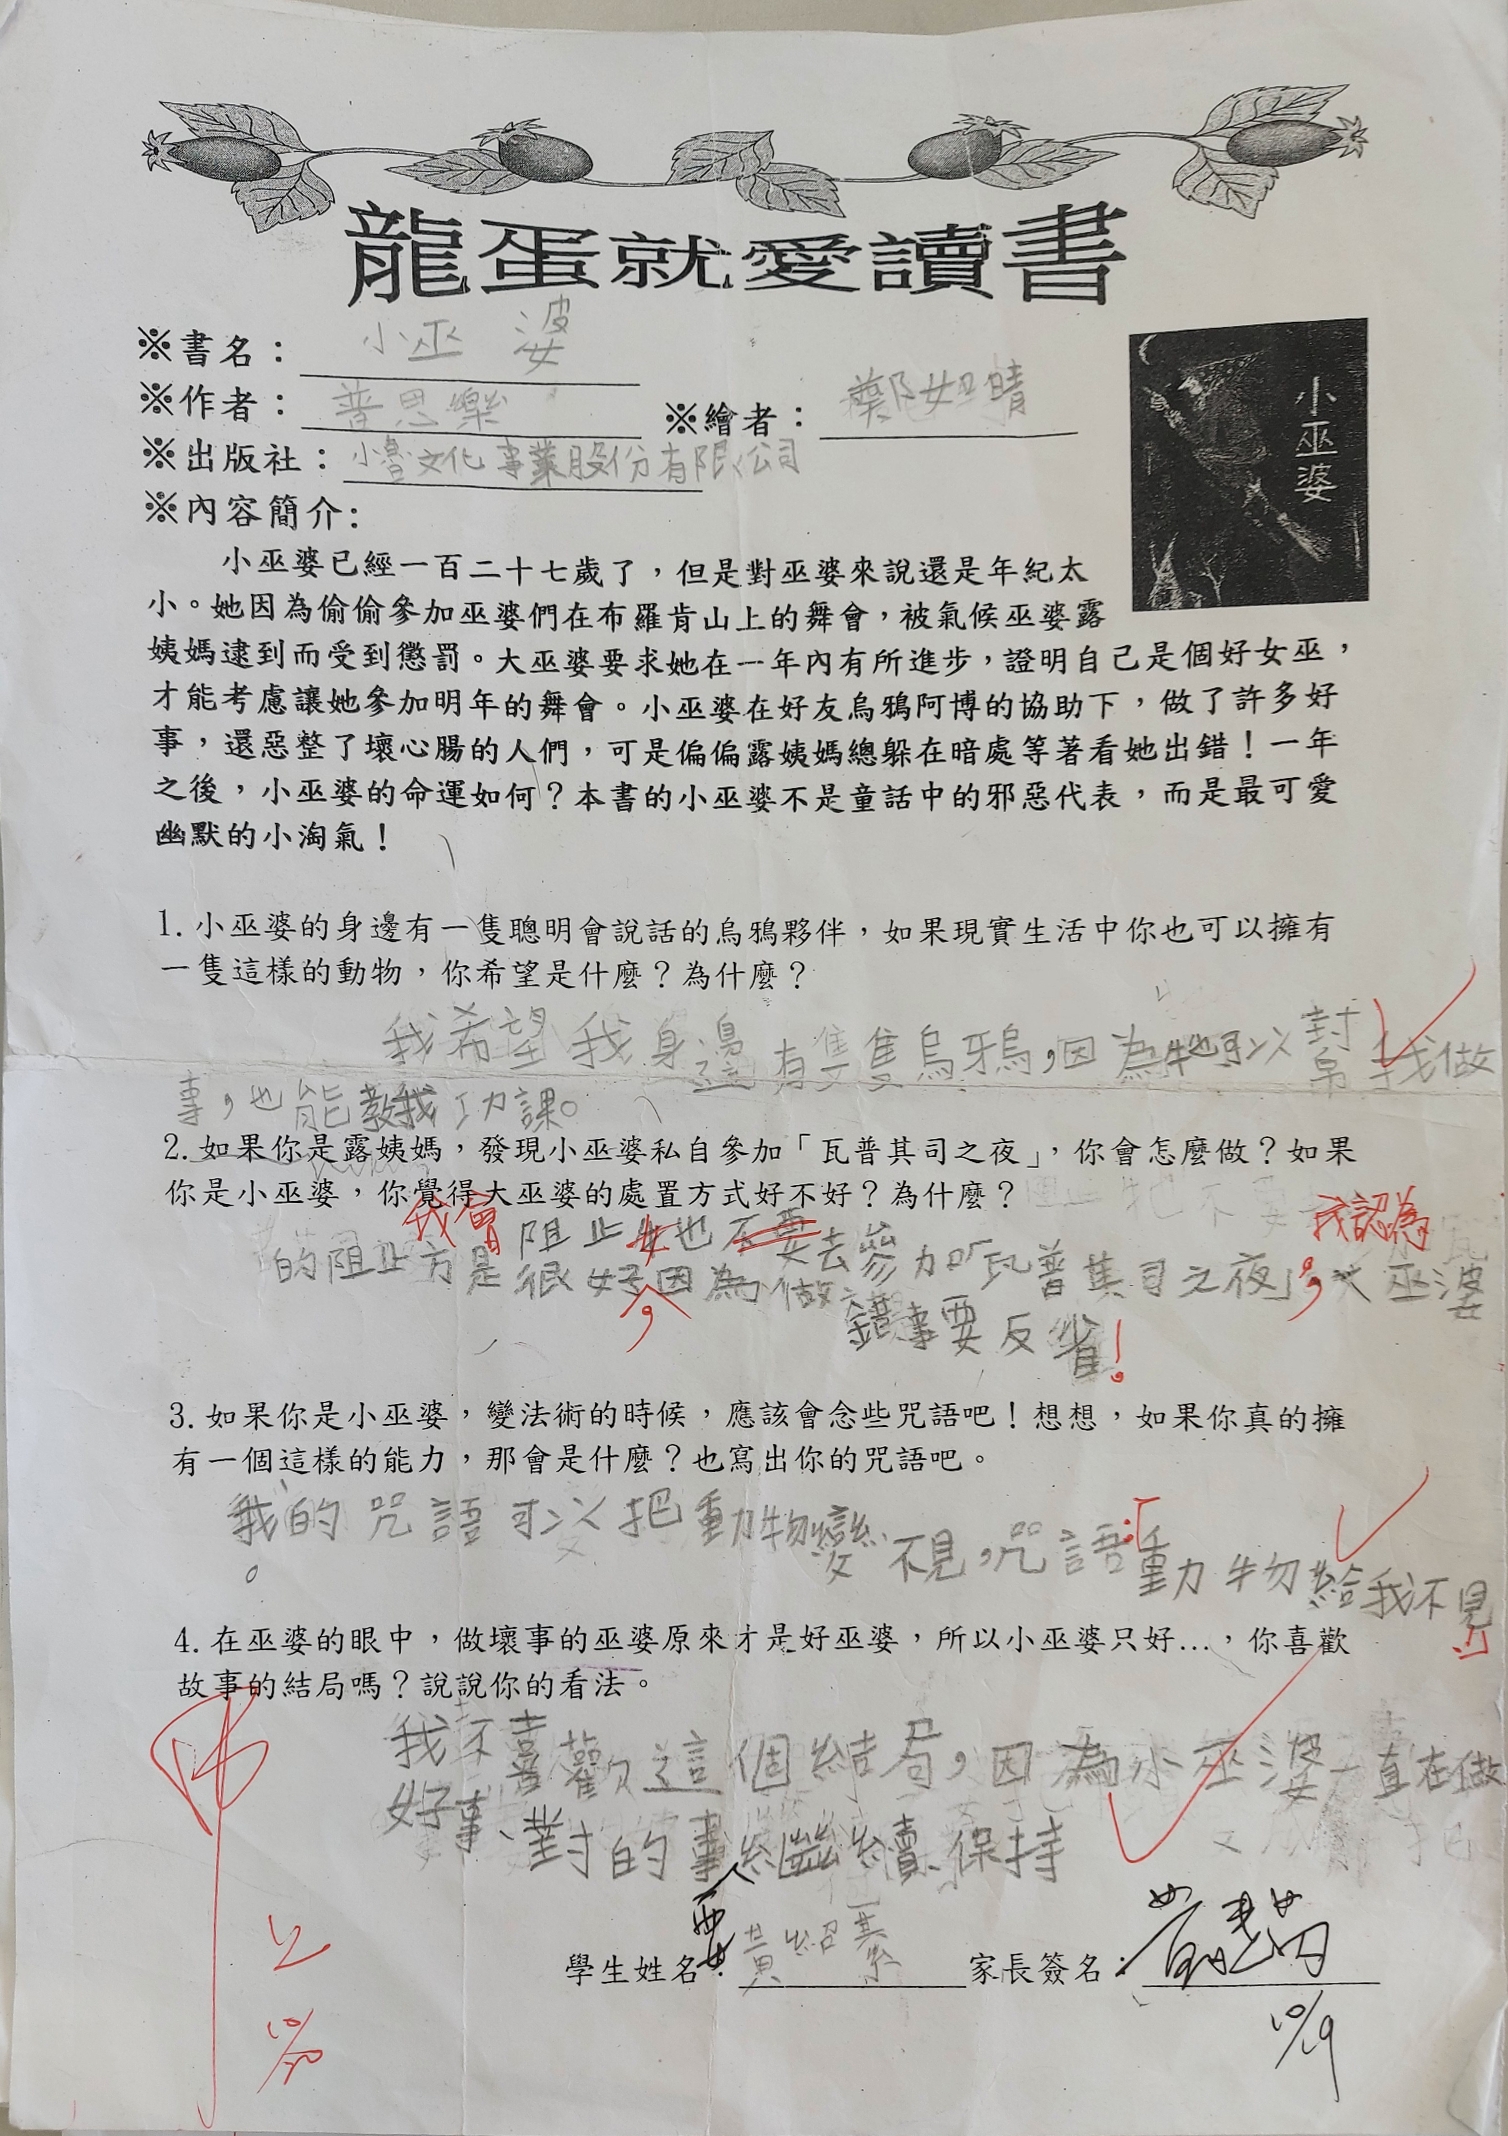 龍蛋就愛讀書
※書名：小巫婆
※作者：普思樂 ※繪者：鄭如晴
※出版社：小魯文化事業股份有限公司
小巫婆
※內容簡介:
小巫婆已經一百二十七歲了，但是對巫婆來說還是年紀太
小。她因為偷偷參加巫婆們在布羅肯山上的舞會，被氣候巫婆露
姨媽逮到而受到懲罰。大巫婆要求她在一年內有所進步，證明自己是個好女巫，
才能考慮讓她參加明年的舞會。小巫婆在好友烏鴉阿博的協助下，做了許多好
事，還惡整了壞心腸的人們，可是偏偏露姨媽總躲在暗處等著看她出錯！一年
之後，小巫婆的命運如何？本書的小巫婆不是童話中的邪惡代表，而是最可愛
幽默的小淘氣！
1. 小巫婆的身邊有一隻聰明會說話的烏鴉夥伴，如果現實生活中你也可以擁有
一隻這樣的動物，你希望是什麼？為什麼？
我希望我身邊有隻隻烏鴉，因為牠可以幫我做
事，也能教我功課。
2. 如果你是露姨媽，發現小巫婆私自參加「瓦普其司之夜」，你會怎麼做？如果
你是小巫婆，你覺得大巫婆的處置方式好不好？為什麼？
我會阻止她不要去參加「瓦普其司之夜」。我認為大巫婆
的阻止方是很好，因為做錯事要反省！
3. 如果你是小巫婆，變法術的時候，應該會念些咒語吧！想想，如果你真的擁
有一個這樣的能力，那會是什麼？也寫出你的咒語吧。
我的咒語可以把動物變不見，咒語：「動物給我不見」
。
4. 在巫婆的眼中，做壞事的巫婆原來才是好巫婆，所以小巫婆只好…，你喜歡
故事的結局嗎？說說你的看法。
我不喜歡這個結局，因為小巫婆一直在做
好事、對的事要繼續保持
學生姓名：黃紹綦 家長簽名：
10/19